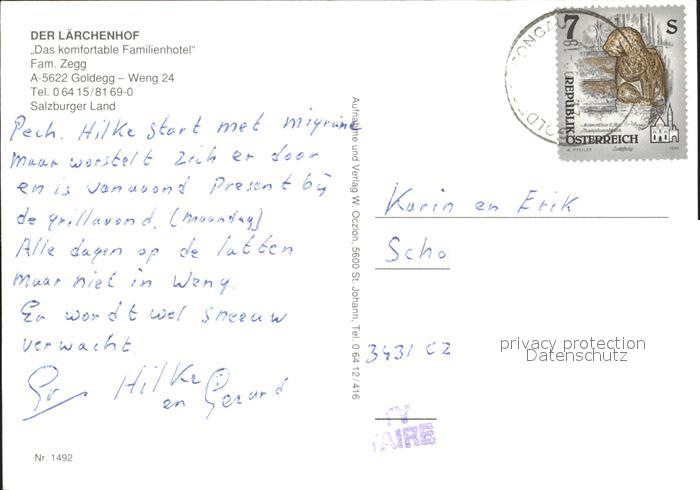 DER LÄRCHENHOF
„Das komfortable Familienhotel"
Fam. Zegg
A-5622 Goldegg – Weng 24
Tel. 0 64 15/81 69-0
Salzburger Land
Pech. Hilke start met migraine
maar worstelt zich er door
en is vanavond present bij
de grillavond. (maandag)
Alle dagen op de latten
maar niet in Weng.
Er wordt wel sneeuw
verwacht.
Gr Hilke
en Gerard
Nr. 1492
Aufnahme und Verlag W. Oczlon, 5600 St. Johann, Tel. 0 64 12/416
7 S
REPUBLIK
ÖSTERREICH
Karin en Erik
Scho
3431 CZ
privacy protection
Datenschutz
TAIRE